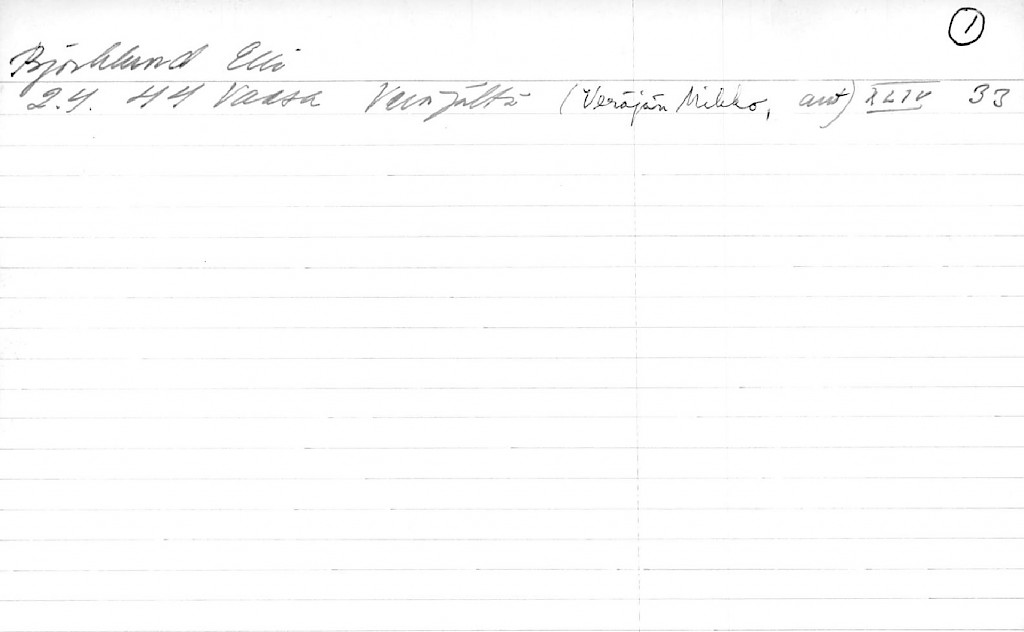 1
Björklund Elli
2.4. 44 Vaasa Veräjältä (Veräjän Mikko, ant) XLIV 33